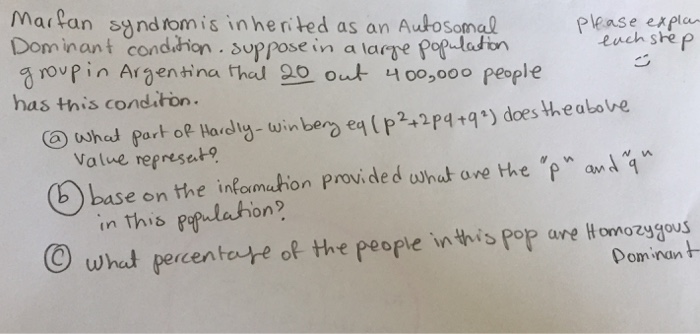 Marfan syndrom is inherited as an Autosomal
Dominant condition. suppose in a large population
group in Argentina that 20 out 400,000 people
has this condition.
please explain
each step
(a) what part of Hardly-winberg eq (p²+2pq+q²) does the above
value represent?
(b) base on the information provided what are the "p" and "q"
in this population?
(c) what percentage of the people in this pop are Homozygous
Dominant